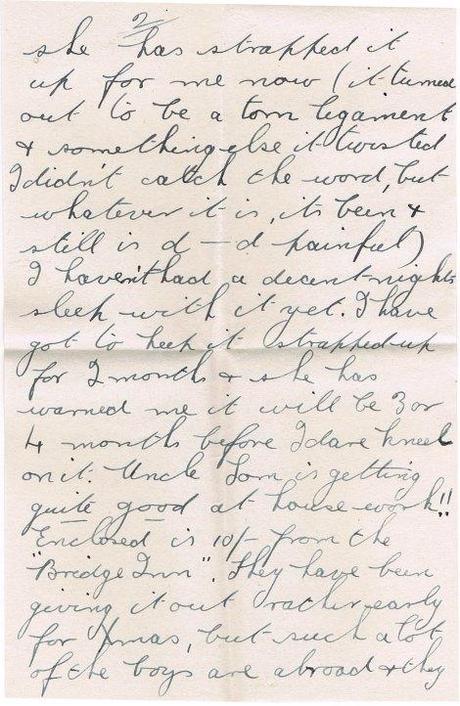 2/
she has strapped it
up for me now (it turned
out to be a torn ligament
& something else it twisted
I didn't catch the word, but
whatever it is, its been &
still is d—d painful)
I haven't had a decent nights
sleep with it yet. I have
got to keep it strapped up
for 2 months & she has
warned me it will be 3 or
4 months before I dare kneel
on it. Uncle Tom is getting
quite good at house work!!
Enclosed is 10/- from the
"Bridge Inn". They have been
giving it out rather early
for Xmas, but such a lot
of the boys are abroad & they